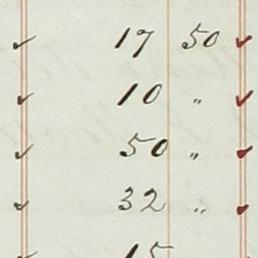 ✓ 17 50 ✓
✓ 10 " ✓
✓ 50 " ✓
✓ 32 " ✓
✓ 15